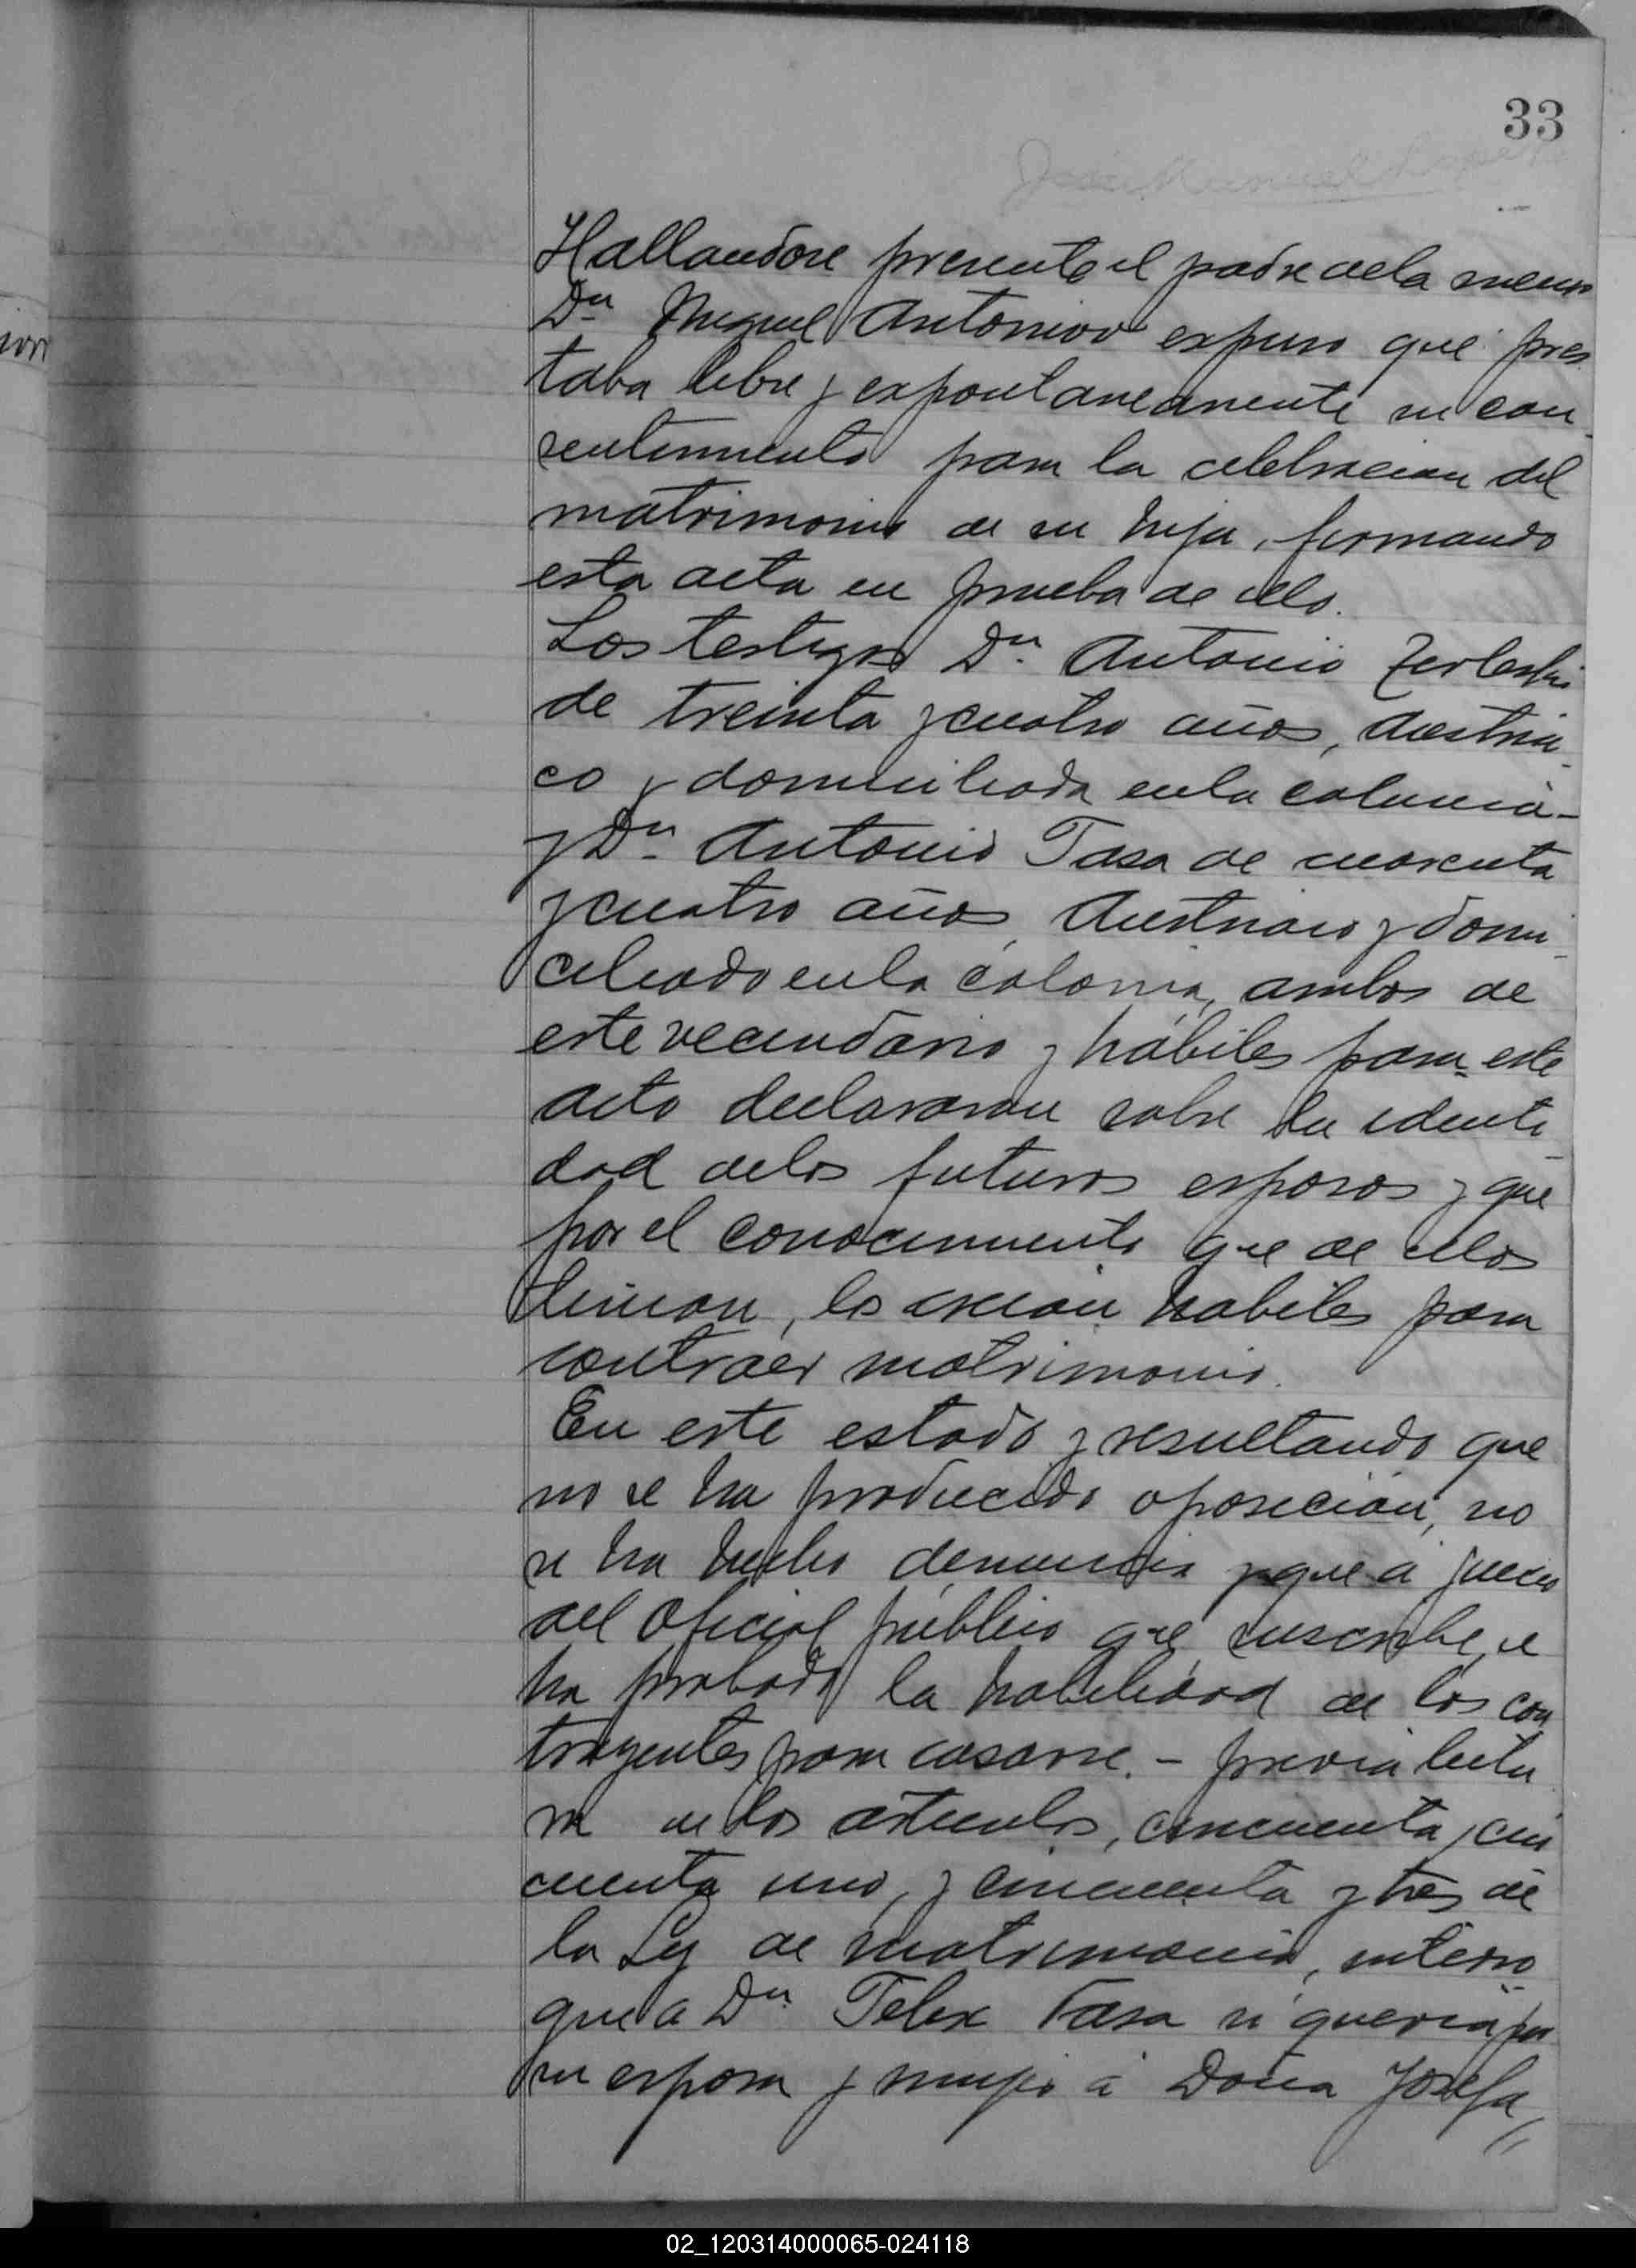 33
Hallandose presente el padre dela menor
Dn Miguel Antoniow expuso que pres
taba libre y expontaneamente su con
sentimiento para la celebracion del
matrimonio de su hija, firmando
esta acta en prueba de ello.
Los testigos Dn Antonio
de treinta y cuatro años, Austria
co y domiciliado enla colonia -
y Dn Antonio Tasa de cuarenta
y cuatro años, Austriaco y domi
ciliado enla colonia, ambos de
este vecindario y hábiles para este
acto declararon sobre la identi
dad delos futuros esposos y que
por el conocimiento que de ellos
tenian, los creian habiles para
contraer matrimonio.
En este estado y resultando que
no se ha producido oposición, no
se ha hecho denuncia y que á juicio
del Oficial público que suscribe, se
ha probado la habilidad de los con
trayentes para casarse. - previa lectu
ra de los articulos, cincuenta, cin
cuenta uno, y cincuenta y tres de
la Ley de matrimonio, interro
gué a Dn Felix Tasa si queria por
su esposa y mujer á Doña Josefa
02_120314000065-024118